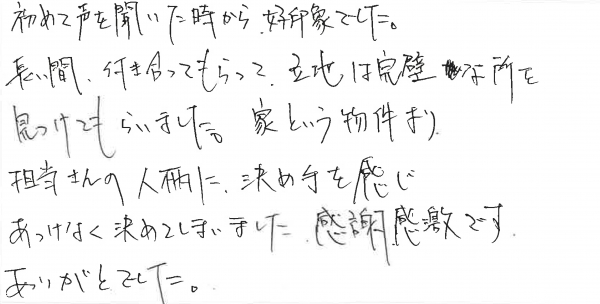 初めて声を聞いた時から、好印象でした。
長い間、付き合ってもらって、立地は完璧な所を
見つけてもらいました。家という物件より、
担当さんの人柄に、決め手を感じ
あっけなく決めてしまいました。感謝感激です。
ありがとでした。